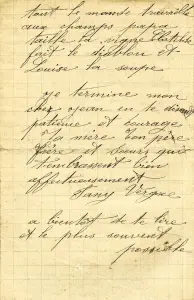 tout le monde travaille
aux champs papa
taille la vigne
fait le et
Louise la soupe
je termine mon
cher Jean en te disant
patience et courage
ta mère ton père
frère et sœurs qui
t'embrassent bien
affectueusement
Fany Vergne
a bientot de te lire
et le plus souvent
possible